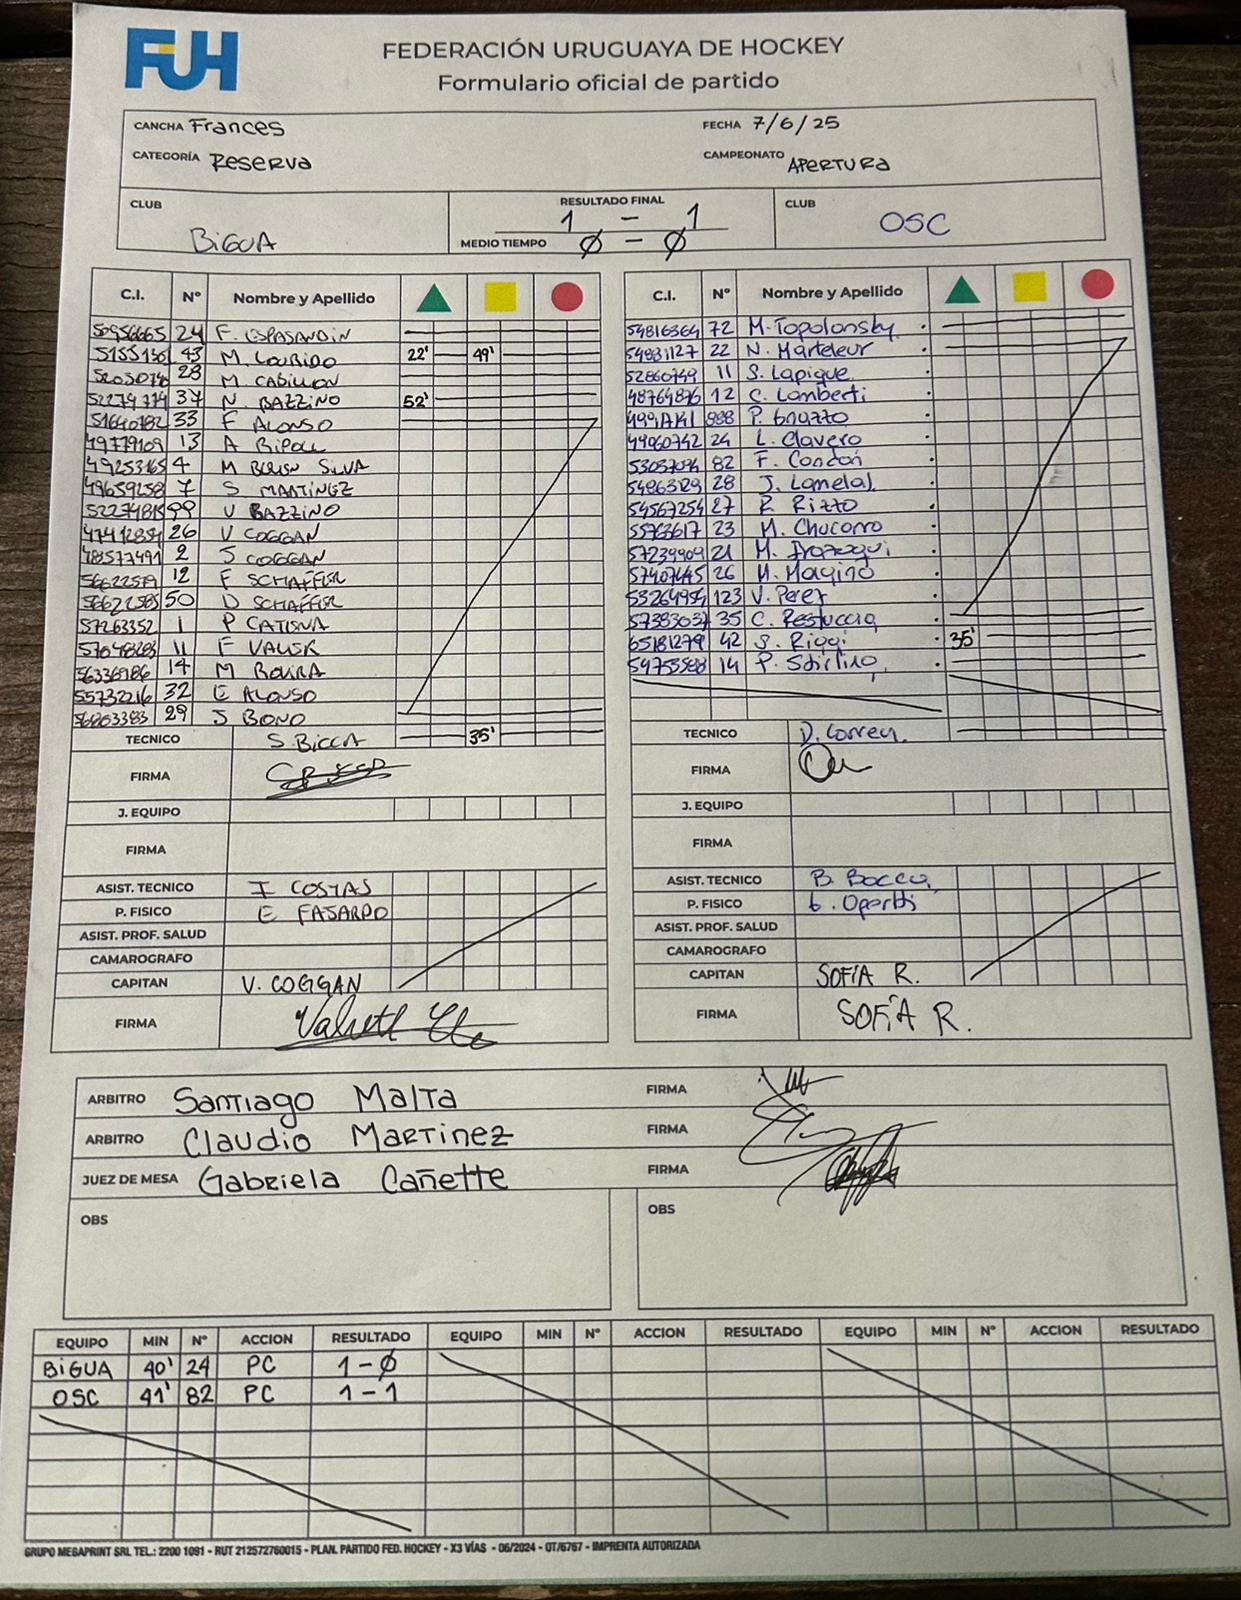 FUH
FEDERACIÓN URUGUAYA DE HOCKEY
Formulario oficial de partido
CANCHA Frances FECHA 7/6/25
CATEGORÍA Reserva CAMPEONATO APERTURA
CLUB BIGUA RESULTADO FINAL 1 - 1 CLUB OSC
MEDIO TIEMPO 0 - 0
C.I. Nº Nombre y Apellido
24 F. ESPASANDIN
43 M. LOURIDO 22' 49'
28 M. CABILLON
37 N. BAZZINO 52'
51640782 33 F ALONSO
49779109 13 A RIPOLL
49253165 4 M SILVA
49659258 7 S MARTINEZ
99 V BAZZINO
26 V COGGAN
48577491 2 J COGGAN
56622579 12 F SCHAFFER
56622585 50 D SCHAFFER
57263352 1 P CATIGNA
11 F
56336986 14 M
55732216 32 E ALONSO
56203383 29 J BONO
TECNICO S. BICCA 35'
FIRMA
J. EQUIPO
FIRMA
ASIST. TECNICO I COSTAS
P. FISICO E FAJARDO
ASIST. PROF. SALUD
CAMAROGRAFO
CAPITAN V. COGGAN
FIRMA
C.I. Nº Nombre y Apellido
54816364 72 M. Topolonsky
54931127 22 N. Marteleur
52860749 11 S. Lapique
48764876 12 C. Lamberti
888 P.
24 L. Clavero
82 F. Condon
54863129 28 J. Lamela
54567254 27 R. Rizzo
55763617 23 M. Chucarro
57239909 21 M.
57407645 26 M. Magino
53264954 123 V. Perez
57383037 35 C. Restuccia
65181279 42 S. Riggi 35'
54755588 14 P. Stirling
TECNICO D. Correa.
FIRMA
J. EQUIPO
FIRMA
ASIST. TECNICO B. Bocca.
P. FISICO
ASIST. PROF. SALUD
CAMAROGRAFO
CAPITAN SOFÍA R.
FIRMA SOFÍA R.
ARBITRO Santiago Malta FIRMA
ARBITRO Claudio Martinez FIRMA
JUEZ DE MESA Gabriela Cañette FIRMA
OBS OBS
EQUIPO MIN Nº ACCION RESULTADO EQUIPO MIN Nº ACCION RESULTADO EQUIPO MIN Nº ACCION RESULTADO
BIGUA 40' 24 PC 1-0
OSC 41' 82 PC 1-1
GRUPO MEGAPRINT SRL TEL.: 2200 1091 - RUT 212572760015 - PLAN. PARTIDO FED. HOCKEY - X3 VÍAS - 06/2024 - OT/6767 - IMPRENTA AUTORIZADA